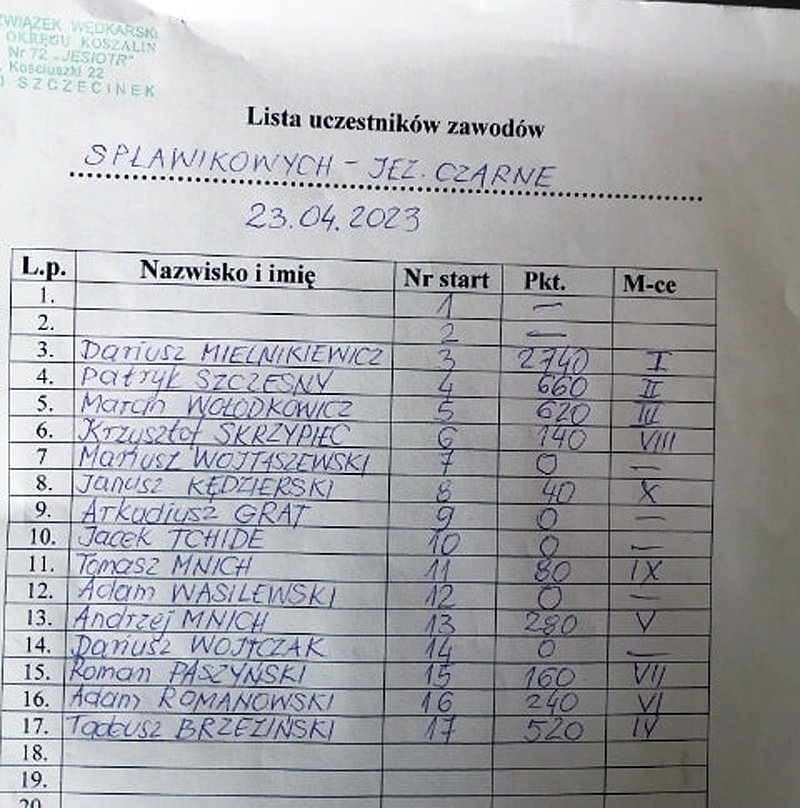 ZWIĄZEK WĘDKARSKI
OKRĘGU KOSZALIN
Nr 72 „JESIOTR"
Kościuszki 22
SZCZECINEK
Lista uczestników zawodów
SPŁAWIKOWYCH - JEZ. CZARNE
23.04.2023
L.p. Nazwisko i imię Nr start Pkt. M-ce
1. 1 —
2. 2 —
3. Dariusz MIELNIKIEWICZ 3 2740 I
4. Patryk SZCZĘSNY 4 660 II
5. Marcin WOŁODKOWICZ 5 620 III
6. Krzysztof SKRZYPIEC 6 140 VIII
7 Mariusz WOJTASZEWSKI 7 0 —
8. Janusz KĘDZIERSKI 8 40 X
9. Arkadiusz GRAT 9 0 —
10. Jacek TCHIDE 10 0 —
11. Tomasz MNICH 11 80 IX
12. Adam WASILEWSKI 12 0 —
13. Andrzej MNICH 13 280 V
14. Dariusz WOJTCZAK 14 0 —
15. Roman PASZYŃSKI 15 160 VII
16. Adam ROMANOWSKI 16 240 VI
17. Tadeusz BRZEZIŃSKI 17 520 IV
18.
19.
20